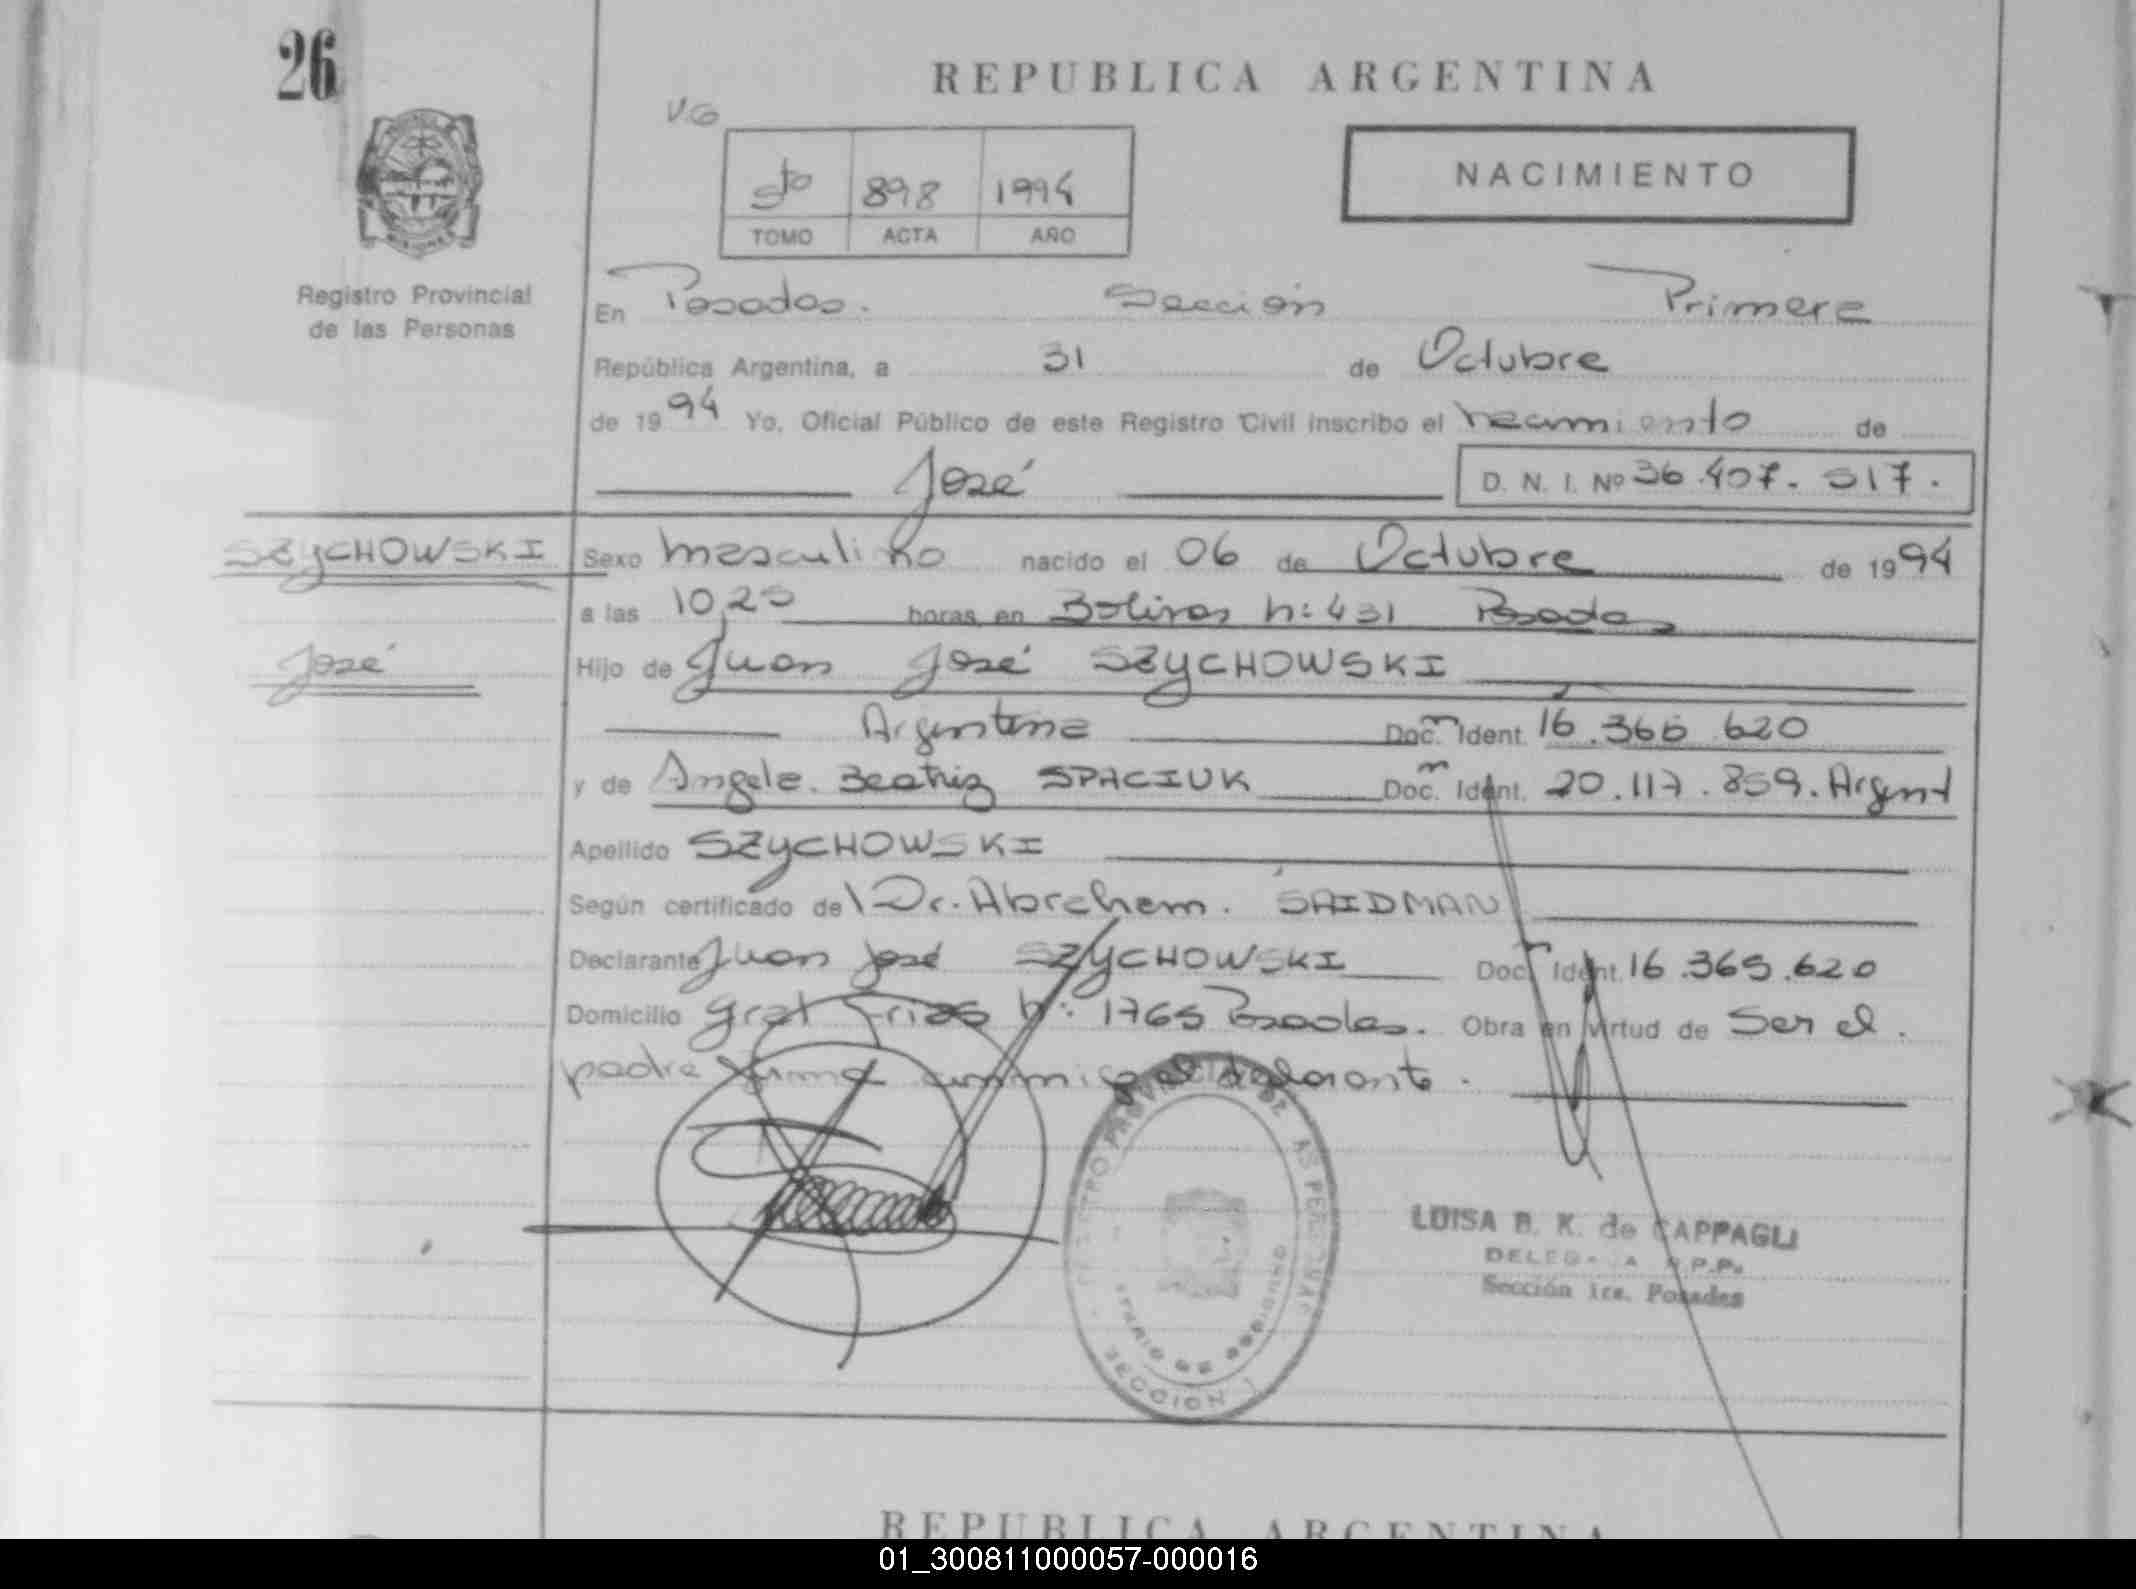 26
REPUBLICA ARGENTINA
V.G
5to 898 1994
TOMO ACTA AÑO
NACIMIENTO
Registro Provincial
de las Personas
En Posadas. Sección Primera
República Argentina, a 31 de Octubre
de 1994 Yo, Oficial Público de este Registro Civil inscribo el nacimiento de
José D. N. I. Nº 36.407.517.
SZYCHOWSKI
José
Sexo masculino nacido el 06 de Octubre de 1994
a las 10,25 horas en Bolivar n: 431 Posadas
Hijo de Juan José SZYCHOWSKI
Argentina Doc. Ident. 16.366.620
y de Angela Beatriz SPACIUK Doc. Ident. 20.117.859. Argent
Apellido SZYCHOWSKI
Según certificado del Dr. Abraham SAIDMAN
Declarante Juan José SZYCHOWSKI Doc. Ident. 16.365.620
Domicilio Gral Frias n: 1765 Posadas. Obra en virtud de Ser el
padre firma conmigo el declarante.
REGISTRO PROVINCIAL DE LAS PERSONAS
SECCION 1
LUISA B. K. de CAPPAGLI
DELEGADA R.P.P.
Sección 1ra. Posadas
REPUBLICA ARGENTINA
01_300811000057-000016